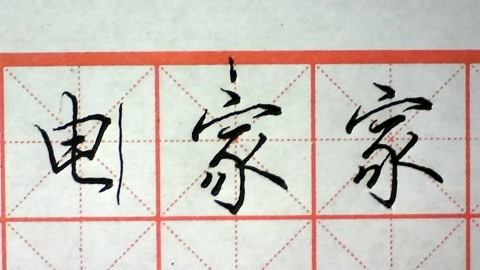 电家家